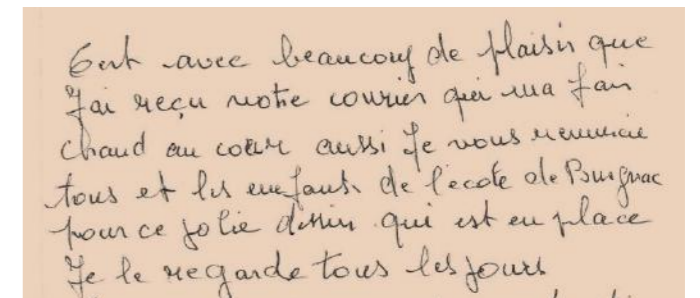 Cest avec beaucoup de plaisir que
J'ai reçu votre courrier qui ma fais
chaud au cœur aussi Je vous remercie
tous et les enfants de l'école de
pour ce jolie dessin qui est en place
Je le regarde tous les jours